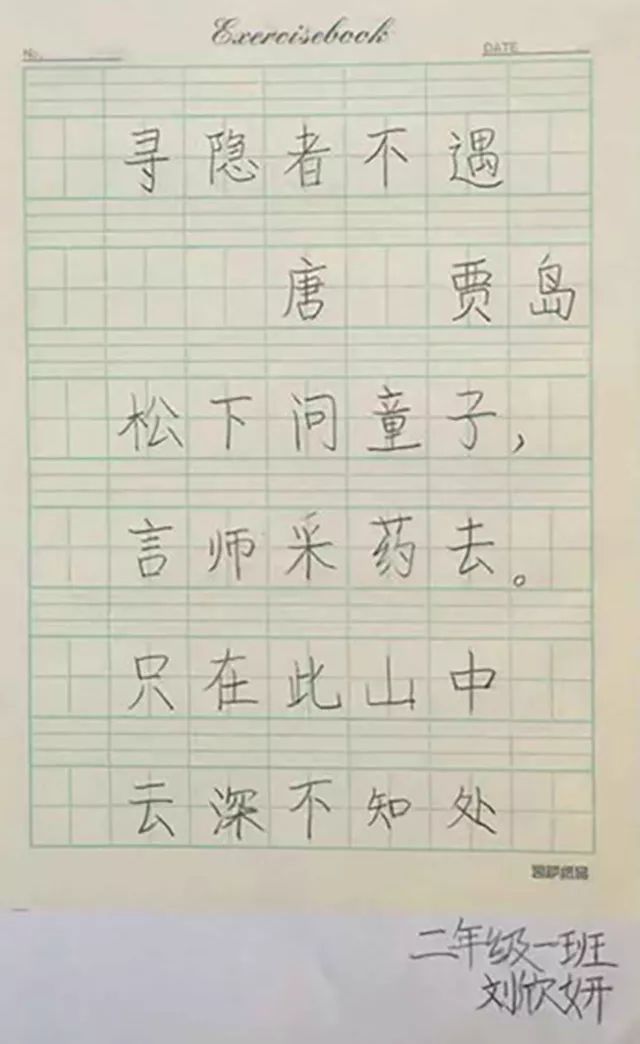 Exercisebook
No.
DATE
寻隐者不遇
唐 贾岛
松下问童子，
言师采药去。
只在此山中
云深不知处
二年级一班
刘欣妍